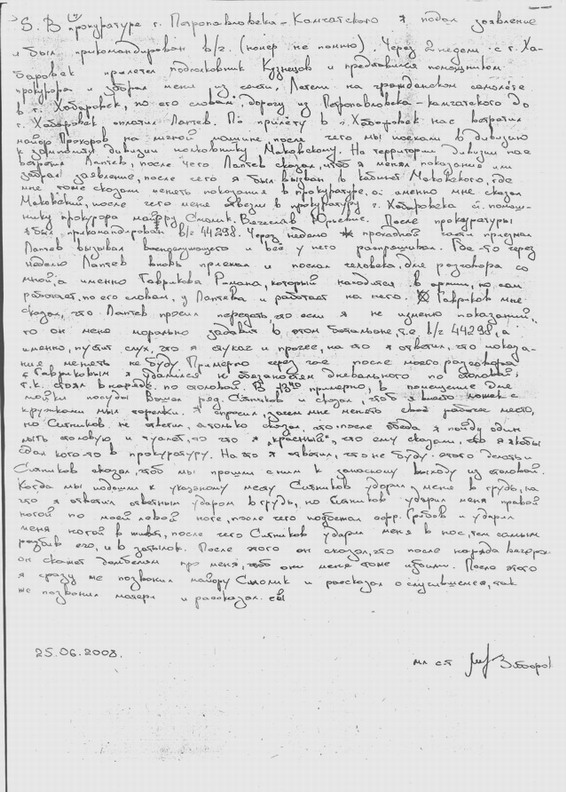 5. В прокуратуре г. Петропавловска-Камчатского я подал заявление
и был прикомандирован в/ч. (номер не помню). Через 2 недели с г. Ха-
баровск прилетел подполковник Кузнецов и представился помощником
прокурора и забрал меня из части. Летели на гражданском самолёте
в г. Хабаровск, по его словам, дорогу из Петропавловска-камчатского до
г. Хабаровск оплатил Лаптев. По прилёту в г. Хабаровск нас встретил
майор Прохоров на личной машине после чего мы поехали в дивизию
к замполиту дивизии полковнику Маковскому. На территории дивизии нас
встретил Лаптев, после чего Лаптев сказал, чтоб я менял показание или
забрал заявление, после чего я был вызван в кабинет Маковского, где
мне тоже сказали менять показания в прокуратуре, а именно мне сказал
Маковский, после чего меня отвезли в прокуратуру г. Хабаровска и помощ-
нику прокурора майору Смолик. Вечеслав Юрьевич. После прокуратуры
я был прикомандирован в/ч 44298. Через неделю
Лаптев вызывал и всё у него распрашивал. Где-то через
неделю Лаптев вновь приехал и послал человека, для разговора со
мной, а именно Гаврикова Романа, который находится в армии, но сам
работает, по его словам, у Лаптева и работает на него. Гавриков мне
сказал, что Лаптев просил передать, что если я не изменю показаний,
то он меня морально задавит в этом батальоне, т.е. в/ч 44298, а
именно, пустит слух, что я стукач и прочее, на что я ответил, что показа-
ние менять не буду. Примерно через час после моего разговора
с Гавриковым я удалился к обязаностям дневального по столовой,
т.к. стоял в наряде по столовой. В примерно, в помещение для
мойки посуды вошел ряд. Ситников и сказал, чтоб я
кружками мыл тарелки. Я спросил, зачем мне менять своё рабочее место,
но Ситников не ответил, а только сказал, что после отбоя я пойду один
мыть столовую и туалет, что я "красный", что ему сказали, что я якобы
сдал кого-то в прокуратуру. На что я ответил, что не буду этого делать и
Ситников сказал, чтоб мы прошли с ним к запасному выходу из столовой.
Когда мы подошли к указаному месту Ситников ударил меня в грудь, на
что я ответил ответным ударом в грудь, но Ситников ударил меня правой
ногой по моей левой ноге, после чего подбежал ефр. Грибов и ударил
меня ногой в живот, после чего Ситников ударил меня в нос, тем самым
разбив его, и в затылок. После этого он сказал, что после наряда вечером
он скажет дембелям про меня, чтоб они меня тоже избили. После этого
я сразу же позвонил майору Смолик и рассказал о случившемся, так
же позвонил матери и рассказал.
25.06.2008.
мл с-т